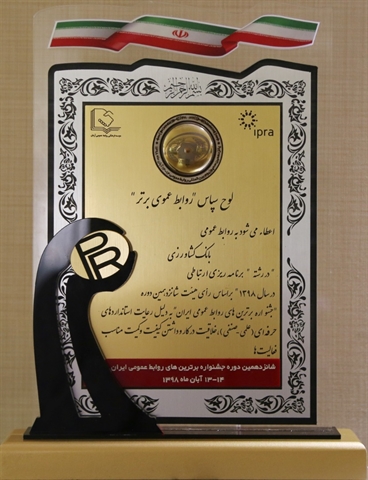 بسم الله الرحمن الرحیم
ipra
لوح سپاس "روابط عمومی برتر"
اعطاء می شود به روابط عمومی
بانک کشاورزی
در رشته " برنامه ریزی ارتباطی "
در سال ۱۳۹۸" براساس رأی هیئت شانزدهمین دوره
"جشنواره برترین های روابط عمومی ایران" به دلیل رعایت استانداردهای
حرفه ای (علمی-صنفی)، خلاقیت در کار و داشتن کیفیت و کمیت مناسب
فعالیت ها
شانزدهمین دوره جشنواره برترین های روابط عمومی ایران
۱۳-۱۴ آبان ماه ۱۳۹۸
PR